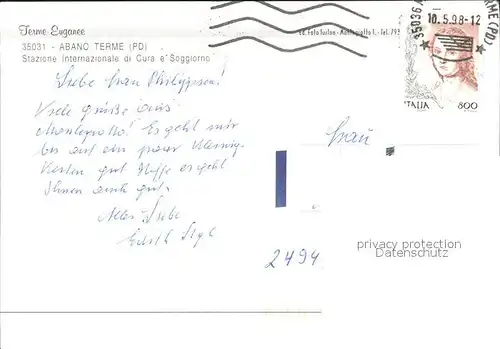 Terme Euganee
35031 - ABANO TERME (PD)
Stazione Internazionale di Cura e Soggiorno
Liebe Frau Philippsen!
Viele Grüße aus
Montegrotto! Es geht mir
bis auf ein paar Kleinig-
keiten gut. Hoffe es geht
Ihnen auch gut.
Alles Liebe
Edith
Frau
2494
35036
10.5.98-12
(PD)
ITALIA
800
privacy protection
Datenschutz